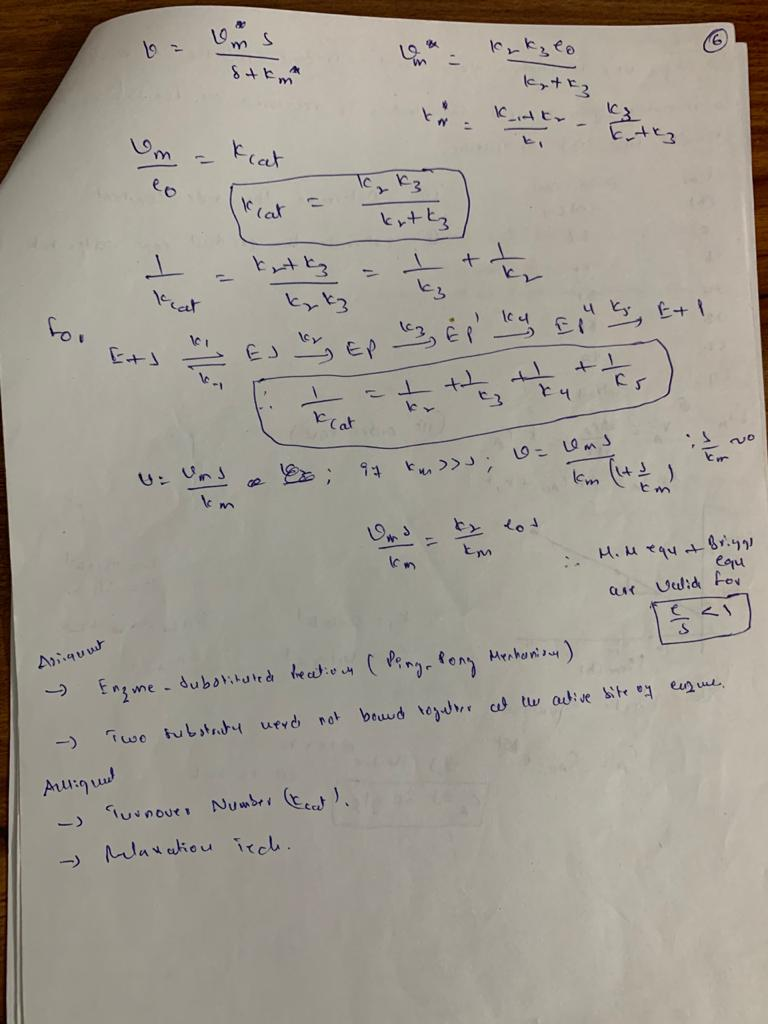 ⑥
v = v_m* s / (s + k_m*)    v_m* = k2 k3 e0 / (k2 + k3)
k_m* = (k_-1 + k2) / k1 - k3 / (k2 + k3)
v_m / e0 = kcat
kcat = k2 k3 / (k2 + k3)
1/kcat = (k2 + k3) / (k2 k3) = 1/k3 + 1/k2
For,
E+S ⇌ (k1, k-1) ES →k2 EP →k3 EP' →k4 EP" →k5 E+P
∴ 1/kcat = 1/k2 + 1/k3 + 1/k4 + 1/k5
v = v_m s / k_m ; if k_m >> s ; v = v_m s / k_m (1 + s/k_m) ; s/k_m ~ 0
v_m s / k_m = k2 / k_m e0 s
∴ M.M equ + Briggs
equ
are valid for
e/s < 1
Assignment
→ Enzme - Substituted Reaction (Ping-Pong Mechanism)
→ Two substrate need not bound together at the active site of enzyme.
Assignment
→ Turnover Number (kcat).
→ Relaxation Tech.